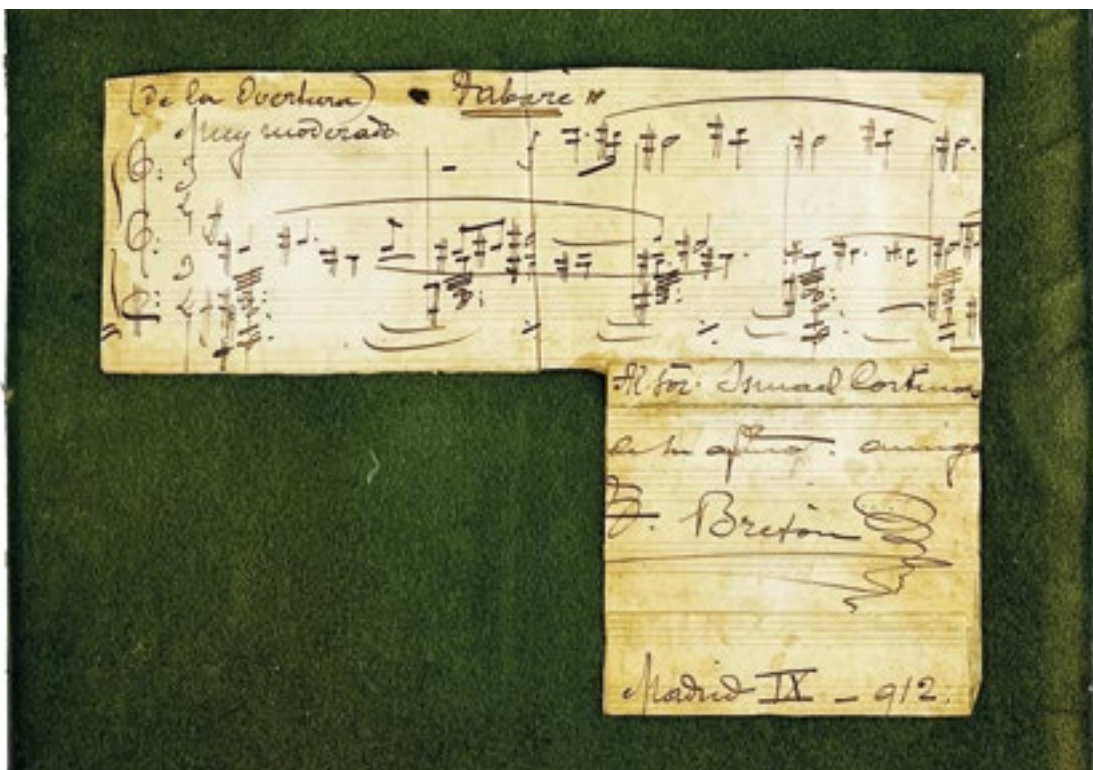 (De la Overtura) Tabaré"
Muy moderado
3
4
3
4
Al Sor. Ismael Cortinas
de su afmo. amigo
T. Bretón
Madrid IX - 912.